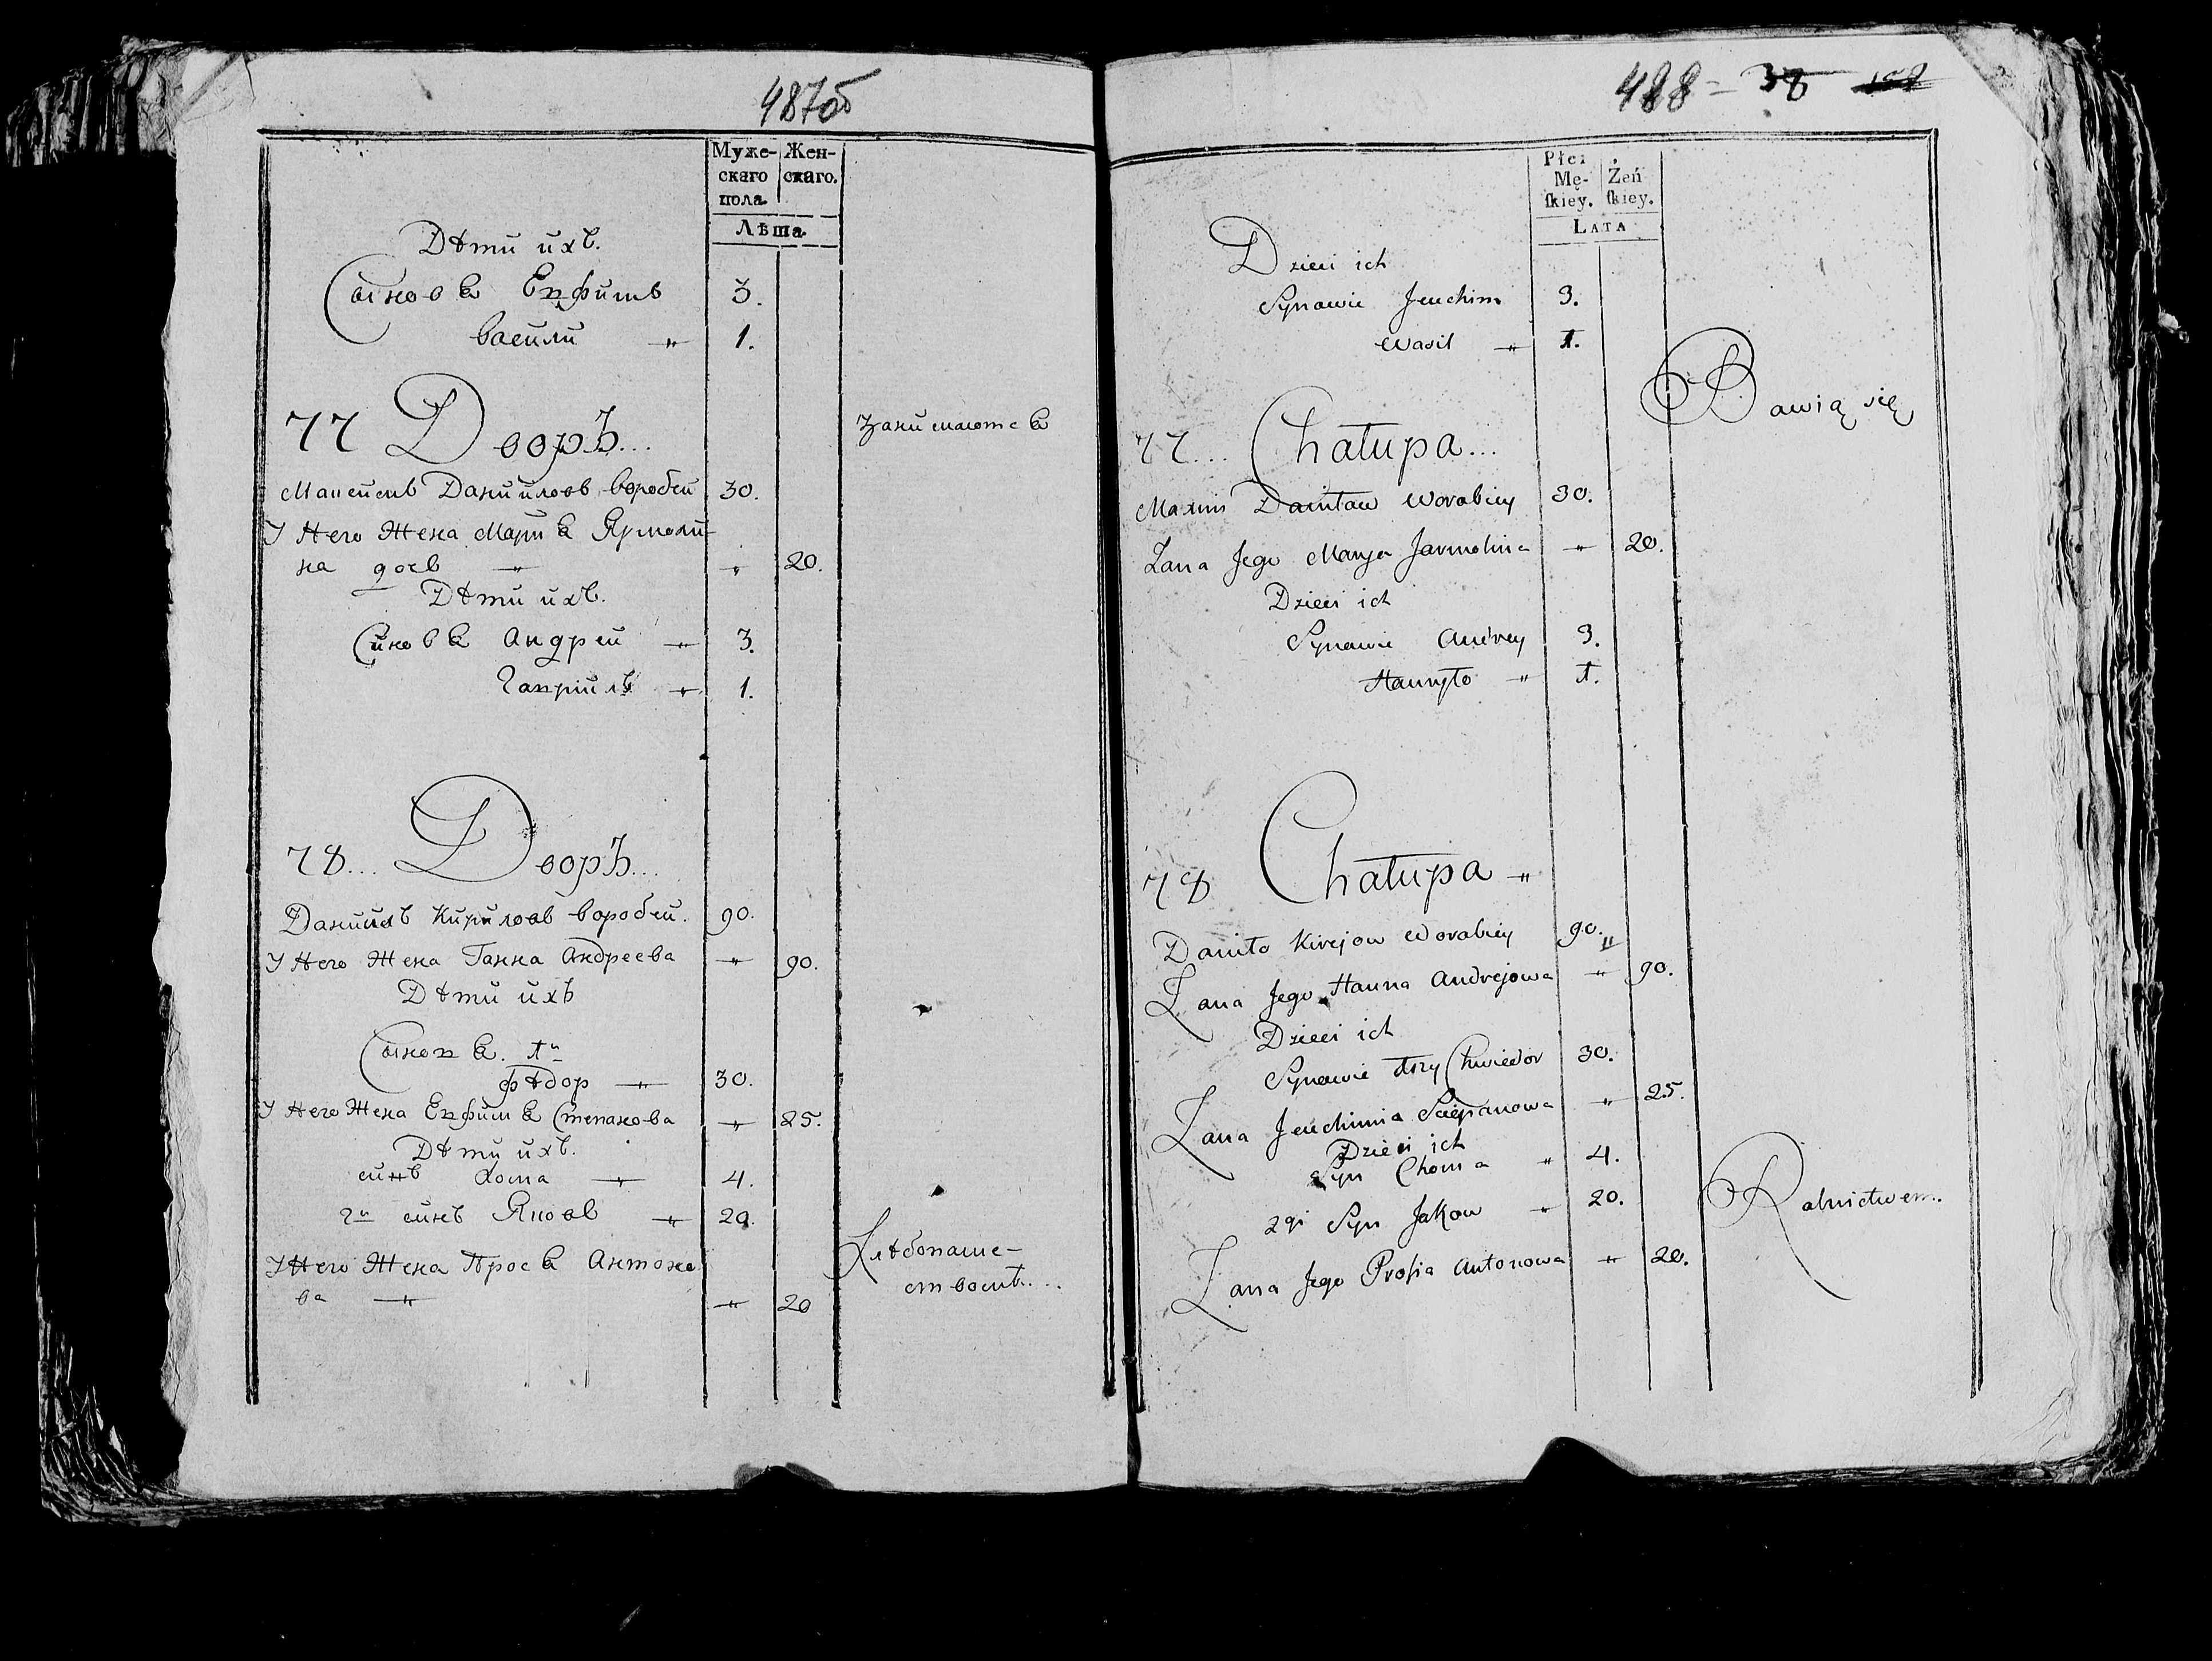 487об
Муже- Жен-
скаго скаго.
пола
Лѣта
Дѣти ихъ.
Синовя Евфимъ 3.
Василй " 1.
77 Дворъ...
занимаютсь
Максимъ Данииловъ Воробей 30.
У Него Жена Маря Ярмоли-
на дочь " " 20.
Дѣти ихъ.
Синовя Андрей " 3.
Гавриилъ " 1.
78... Дворъ...
Даниилъ Кириловъ Воробей. 90.
У Него Жена Ганна Андреева " 90.
Дѣти ихъ
Синовя. 1й
Фѣдор " 30.
У Него Жена Евфимя Степанова " 25.
Дѣти ихъ.
синъ Хома " 4.
2й синъ Яковъ " 20.
У Него Жена Прося Антоно
ва " " 20
Хлѣбопаше-
ствомъ...
488 = 38
Płci
Mę- Żeń
ſkiey. ſkiey.
LATA
Dzieci ich
Synowie Jeuchim 3.
Wasil " 1.
Bawią się
77... Chałupa...
Maxim Daniłow Worabiey 30.
Żana Jego Marya Jarmolina " 20.
Dzieci ich
Synowie Andrey 3.
Hauryło " 1.
78 Chałupa "
Daniło Kirejow Worabiey 90. "
Żana Jego Hanna Andrejowa " 90.
Dzieci ich
Synowie 1szy Chwiedor 30.
Żana Jeuchimia Sciepanowa " 25.
Dzieci ich
Syn Choma " 4.
2gi Syn Jakow " 20.
Rolnictwem.
Żana Jego Prosia Antonowa " 20.